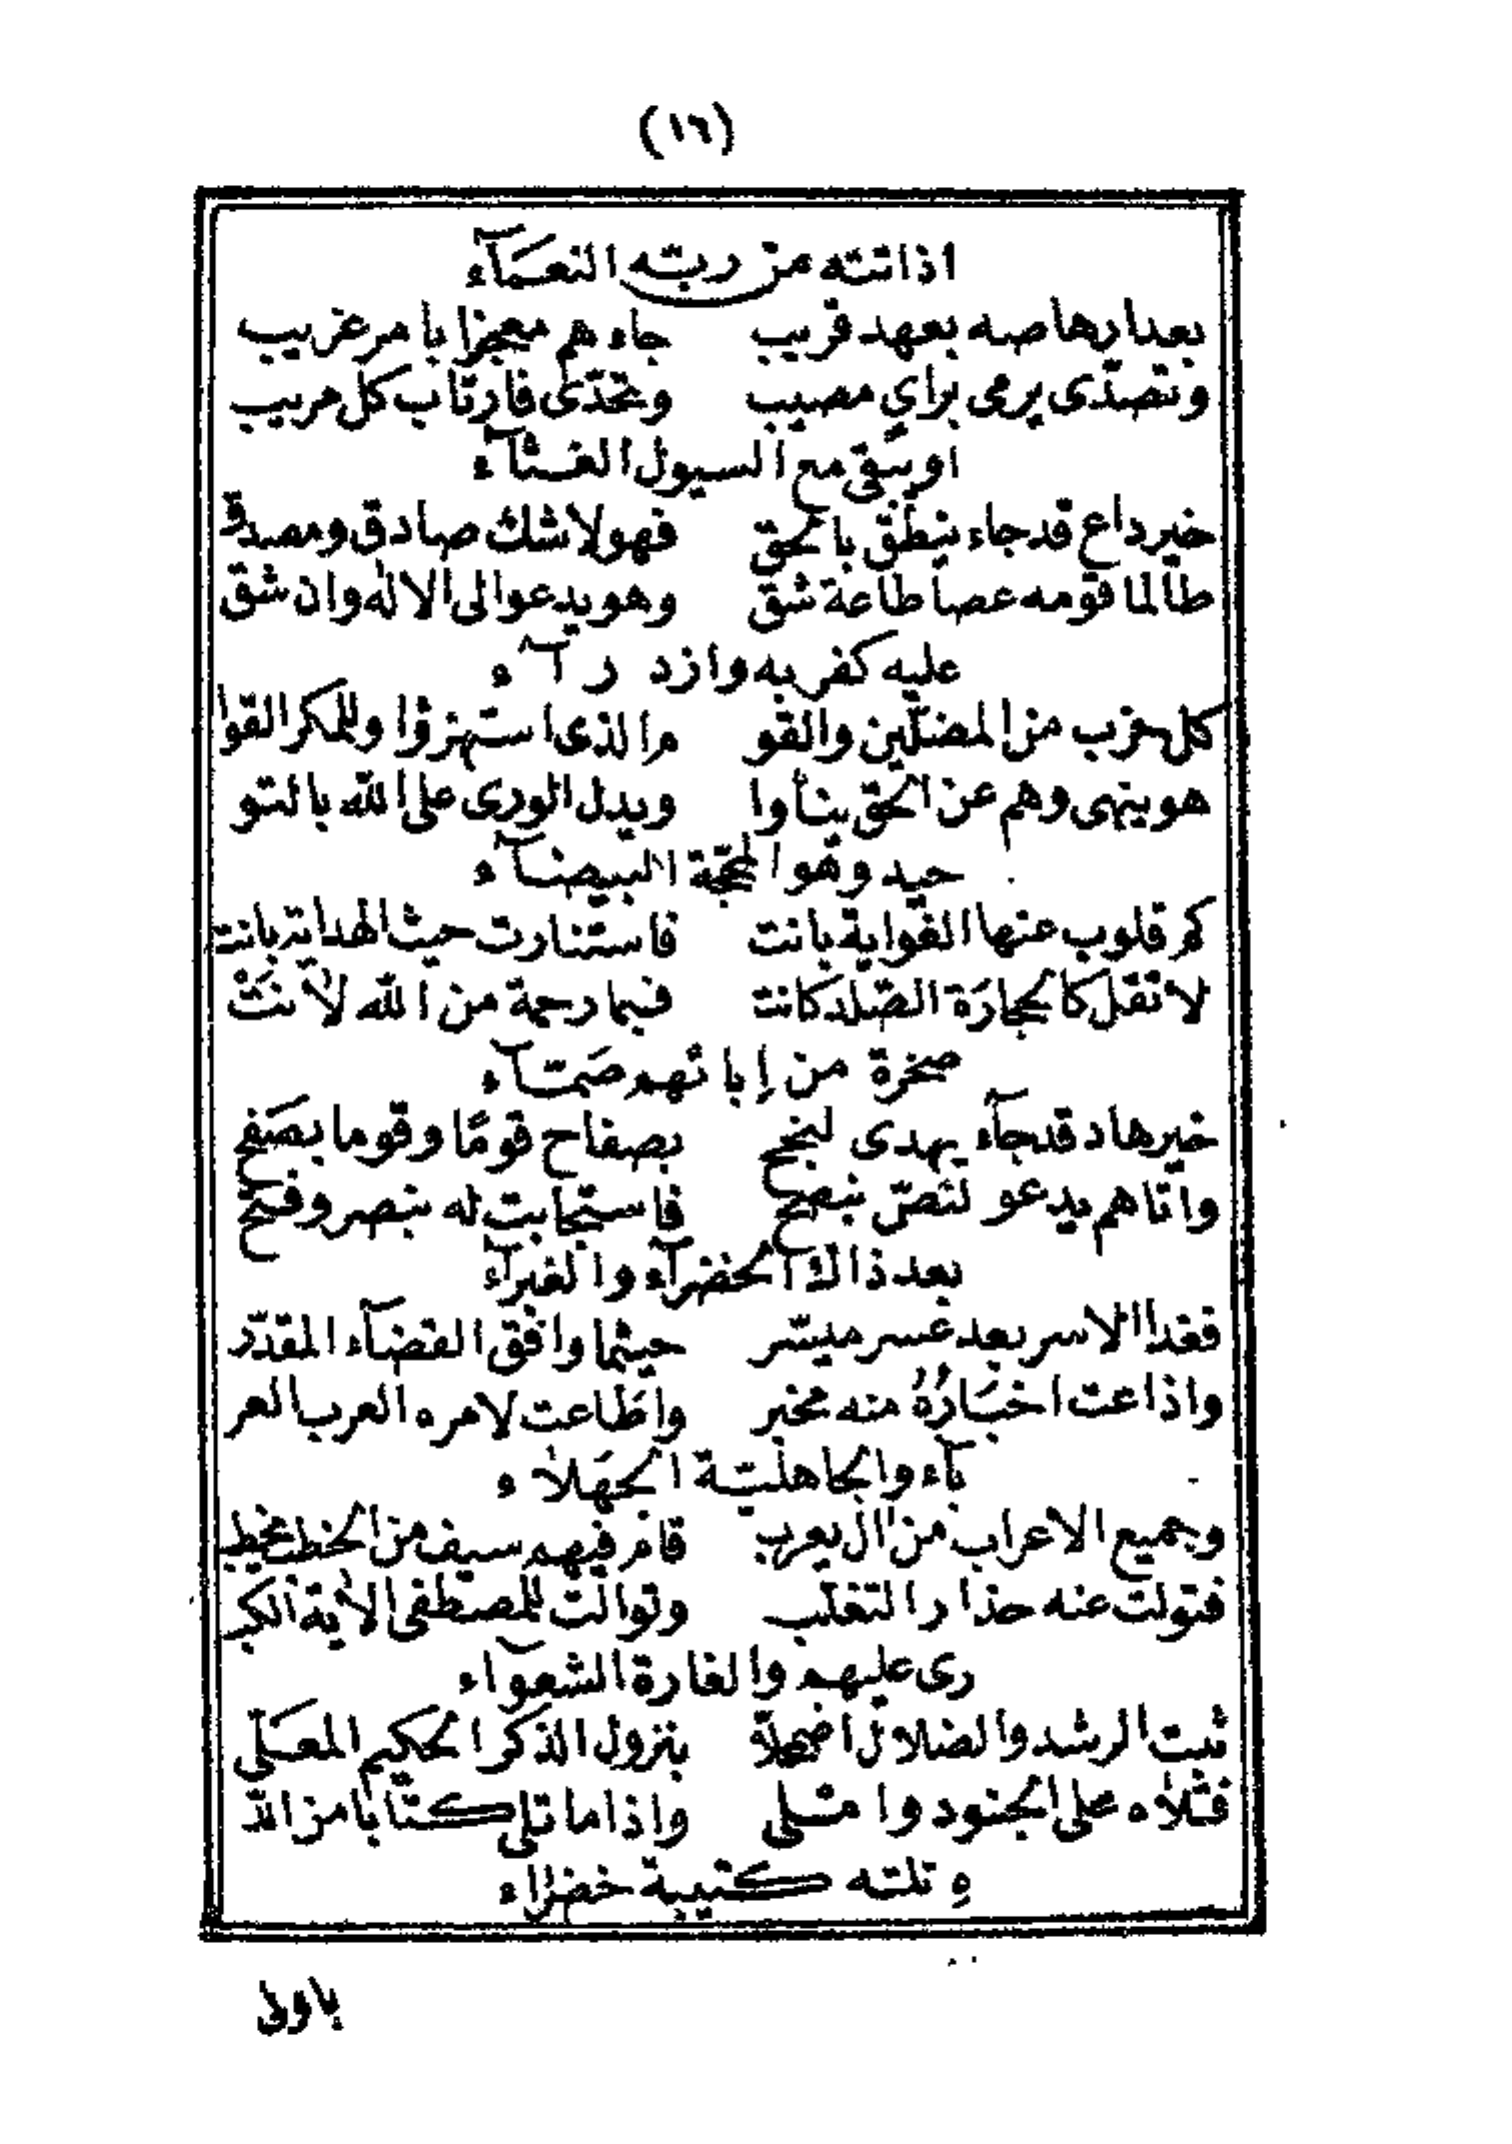 (١٦)
اذا تته من ربّه النعمآء
بعد ارهاصه بعهد قريب جاء هم معجزا بامر غريب
وتصدّى يرمى براي مصيب وتحدّى فارتاب كل مريب
او يبقى مع السيول الغثآء
خير داع قد جاء ينطق بالحق فهو لا شك صادق ومصدق
طالما قومه عصا طاعة شق وهو يدعو الى الاله وان شق
عليه كفر به وازد رآء
كل حزب من المضلّين والقو م الذى استهزؤا وللمكر القوا
هو ينهى وهم عن الحق ينأوا ويدل الورى على الله بالتو
حيد وهو المحجّة البيضآء
كم قلوب عنها الغواية بانت فاستنارت حيث الهداية بانت
لا تقل كالحجارة الصّلد كانت فبما رحمة من الله لأنَتْ
صخرة من إبائهم صَمّآء
خير هاد قد جآء يهدى لنجح بصفاح قومًا وقوما بصَفح
واتاهم يدعو لنصّ بنصح فاستجابت له بنصر وفتح
بعد ذاك الخضرآء والغبرآء
فغدا الامر بعد عسر ميسّر حيثما وافق القضآء المقدّر
واذاعت اخبَارُهُ منه مخبر واطاعت لامره العرب العر
بآء والجاهليّة الجهَلاء
وجميع الاعراب من ال يعرب قام فيهم سيف من الخطب يخطب
فتولت عنه حذار التغلب وتوالت للمصطفى الأية الكبـ
رى عليهم والغارة الشعوآء
ثبت الرشد والضلال اضمحلّا بنزول الذكر الحكيم المعَلّى
فتلاه على الجنود واملى واذا ما تلى كتابا من اللّـ
ه تلته كتيبة خضراء
باولى